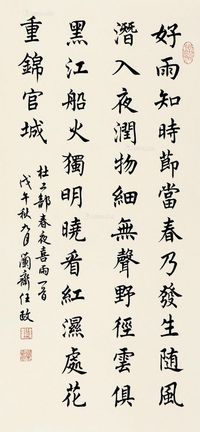 好雨知時節當春乃發生随風
潛入夜潤物細無聲野徑雲俱
黑江船火獨明曉看紅濕處花
重錦官城
杜工部春夜喜雨一首
戊午秋九月蘭齋任政